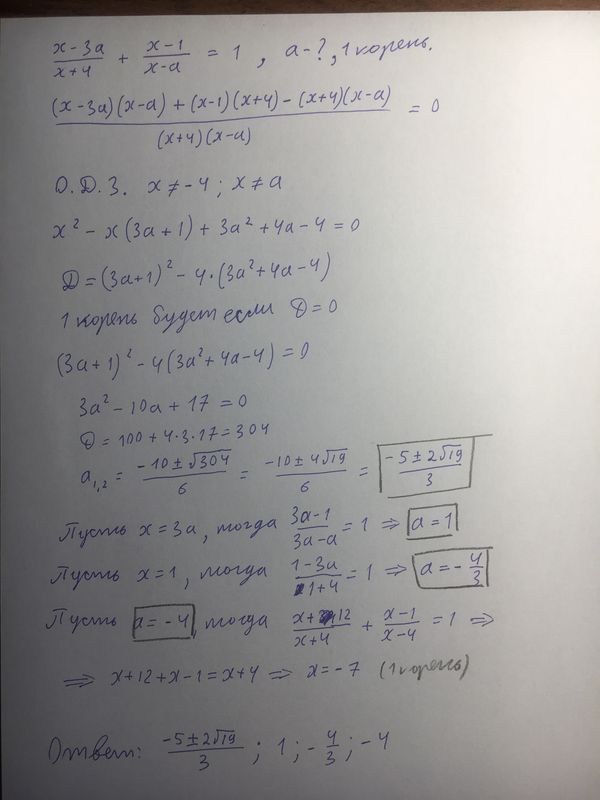 (x-3a)/(x+4) + (x-1)/(x-a) = 1 , a-?, 1 корень.
((x-3a)(x-a)+(x-1)(x+4)-(x+4)(x-a))/((x+4)(x-a)) = 0
О.Д.З. x≠-4; x≠a
x²-x(3a+1)+3a²+4a-4=0
D=(3a+1)²-4·(3a²+4a-4)
1 корень будет если D=0
(3a+1)²-4(3a²+4a-4)=0
3a²-10a+17=0
D=100+4·3·17=304
a₁,₂ = (-10±√304)/6 = (-10±4√19)/6 = (-5±2√19)/3
Пусть x=3a, тогда (3a-1)/(3a-a)=1 ⇒ a=1
Пусть x=1, тогда (1-3a)/(1+4)=1 ⇒ a=-4/3
Пусть a=-4, тогда (x+12)/(x+4) + (x-1)/(x-4) = 1 ⇒
⇒ x+12+x-1=x+4 ⇒ x=-7 (1 корень)
Ответ: (-5±2√19)/3 ; 1 ; -4/3 ; -4